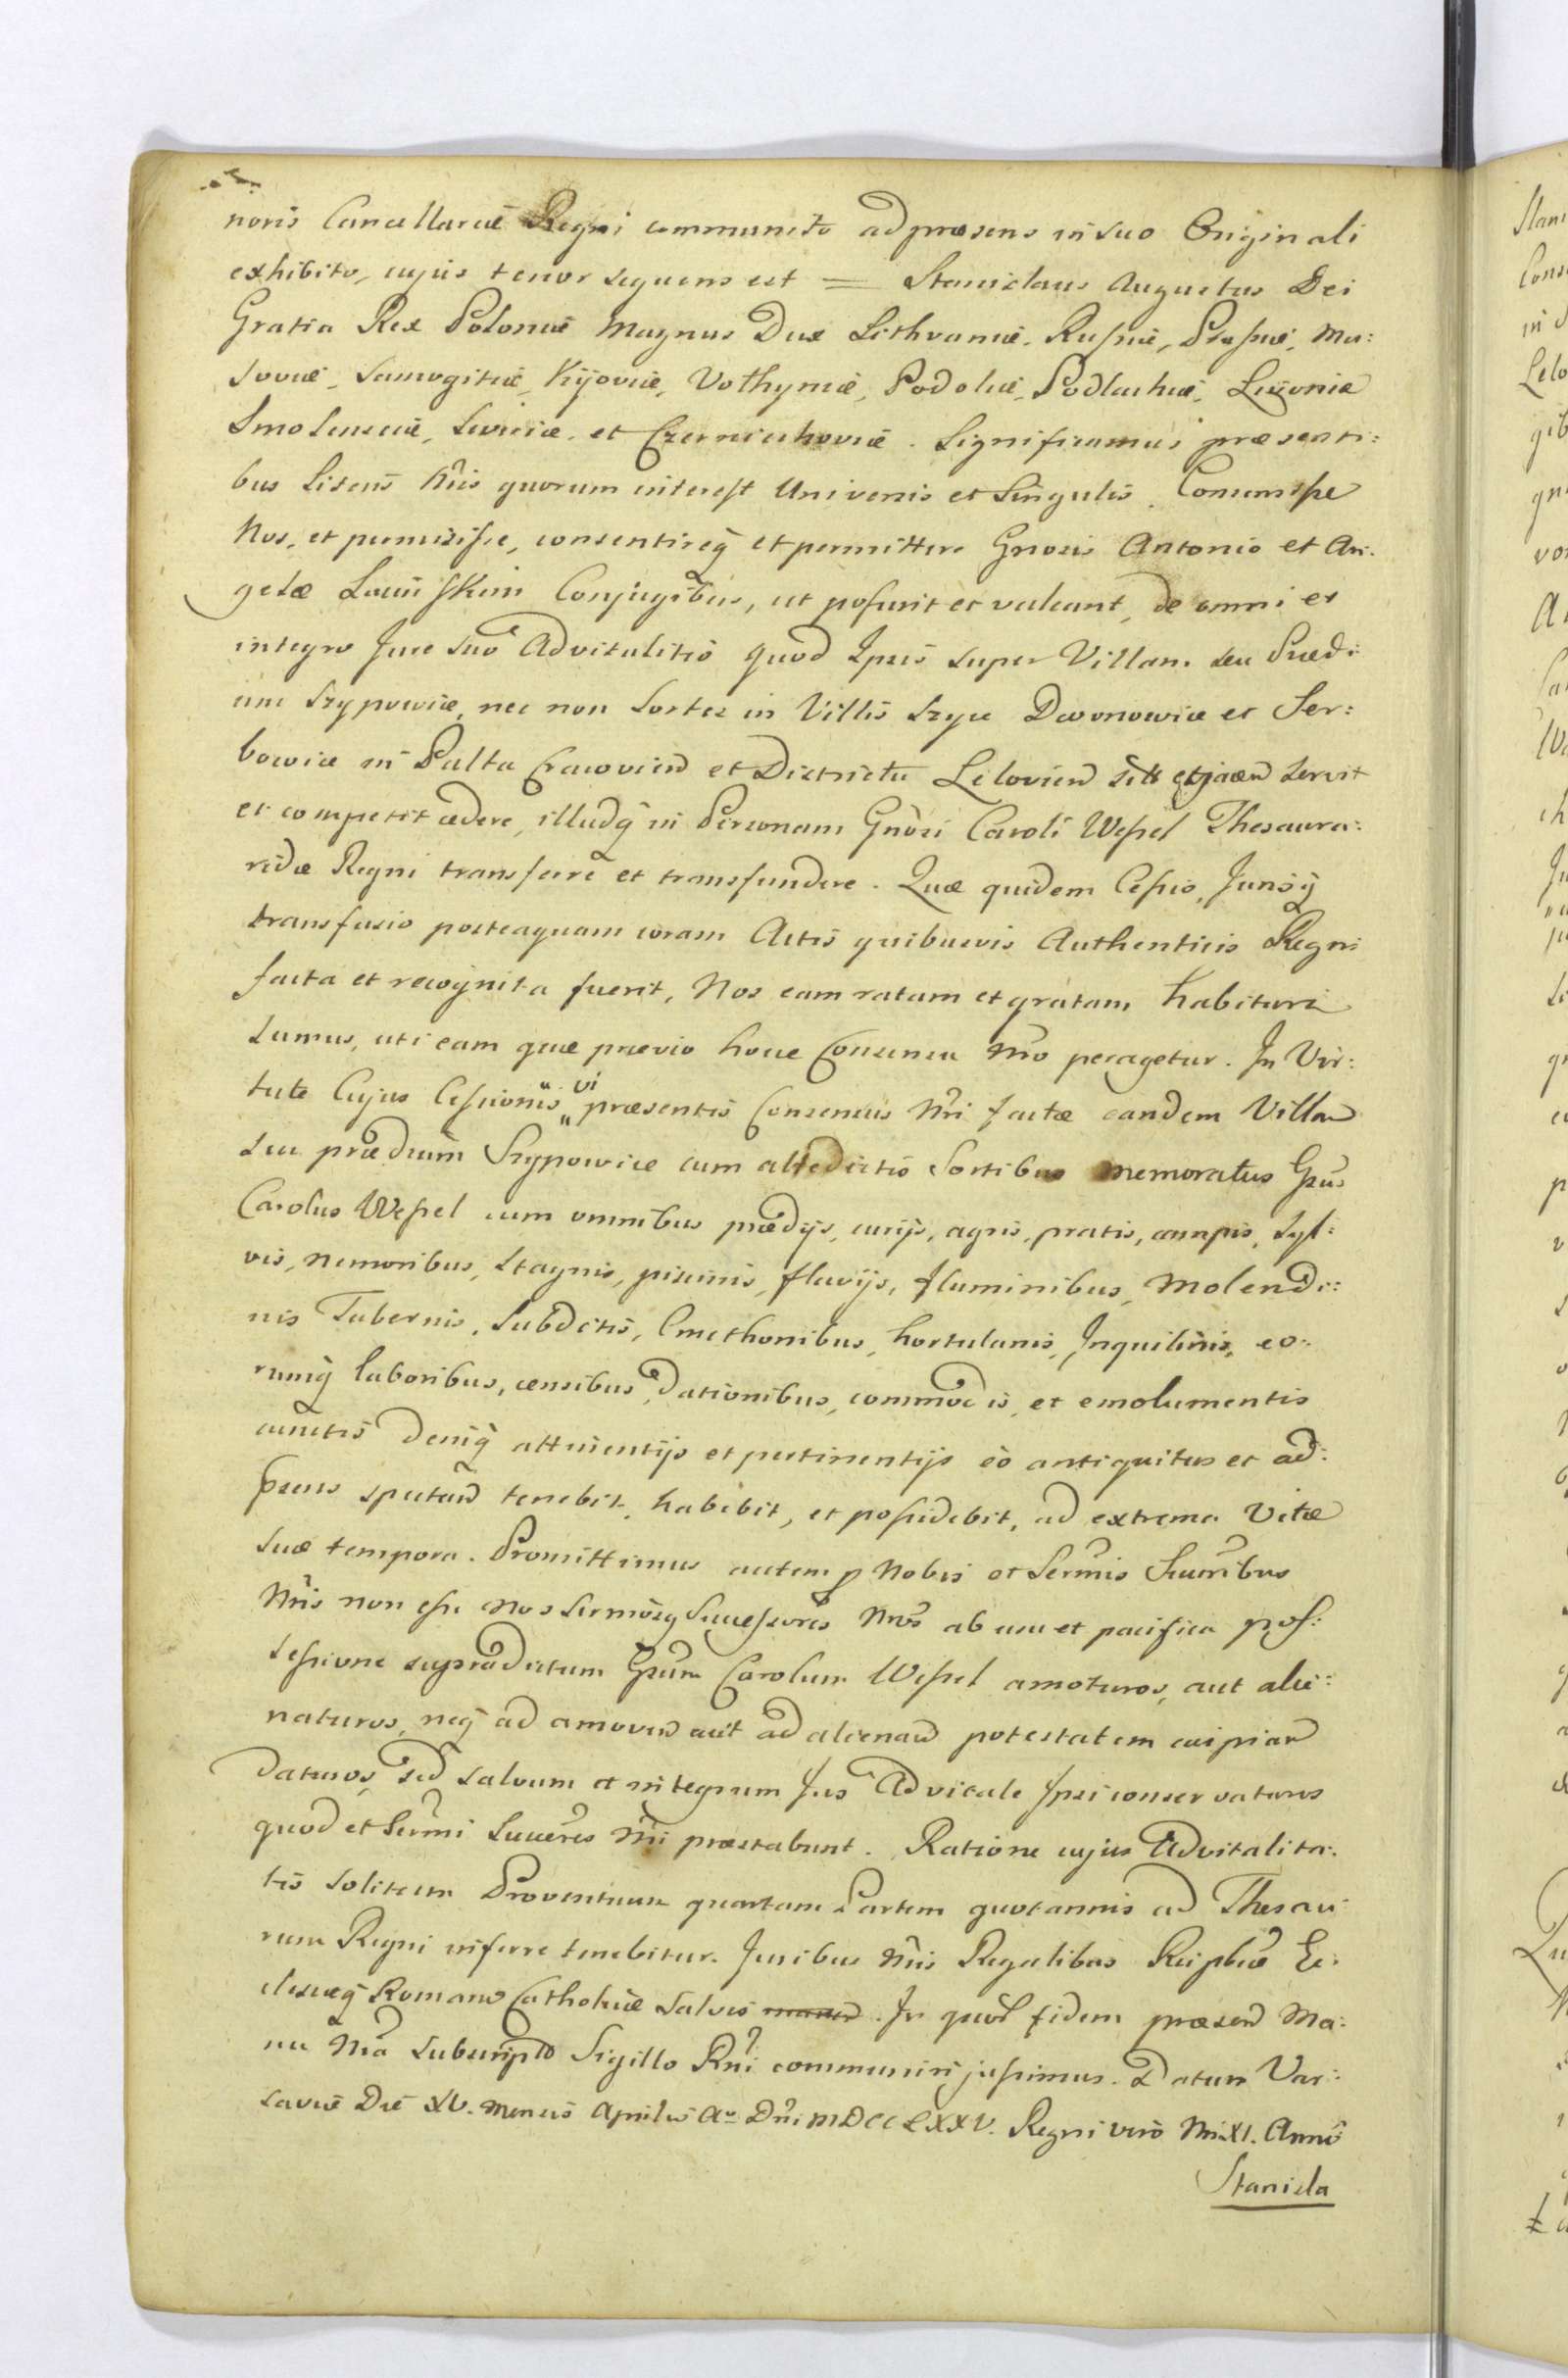 noris Cancellariæ Regni communito ad præsens in suo Originali
exhibito, cujus tenor sequens est = Stanislaus Augustus Dei
Gratia Rex Poloniæ Magnus Dux Lithvaniæ, Rusſiæ, Prusſiæ, Ma:
soviæ, Samogitiæ, Kijoviæ, Volhyniæ, Podoliæ, Podlachiæ, Livoniæ
Smolensciæ, Seviriæ, et Czerniechoviæ. Significamus præsenti:
bus Literis Nris quorum interest Universis et Singulis. Consensisſe
Nos, et permisisſe, consentireq et permittere Gnosis Antonio et An:
gelæ Conjugibus, ut posſint et valeant, de omni et
integro Jure suo Advitalitio quod Ipsis super Villam seu Prædi:
um Szypowice, nec non Sortes in Villis Szyce Dwonowice et Ser:
bowice in Palttu Cracovien et Districtu Lelovien sitt et jacen servit
et competit cedere, illudq in Personam Gnosi Caroli Wesſel Thesaura:
ridæ Regni transferre et transfundere. Quæ quidem Cesſio, Jurisq
transfusio posteaquam coram Actis quibusvis Authenticis Regni
facta et recognita fuerit, Nos eam ratam et gratam habituri
sumus, uti eam quæ prævio hocce Consensu Nro peragetur. In Vir:
tute Cujus Cesſionis vi præsentis Consensus Nri factæ eandem Villam
seu prædium Szypowice cum altedictis Sortibus memoratus Gsus
Carolus Wesſel cum omnibus prædijs, curijs, agris, pratis, campis, Syl:
vis, Nemoribus, Stagnis, piscinis, fluvijs, fluminibus, Molendi:
nis Tabernis, Subditis, Cmethonibus, hortulanis, Inquilinis, eo:
rumq laboribus, censibus, dationibus, commodis, et emolumentis
cunctis deniq attinentijs et pertinentijs eò antiquitus et ad:
præns spectan tenebit, habebit, et posſidebit, ad extrema Vitæ
suæ tempora. Promittimus autem p Nobis et Sermis Succribus
Nris non esſe Nos Sermosq Succesſores Nros ab usu et pacifica posſ:
sesſione supradictum Gsum Carolum Wesſel amoturos, aut alie:
naturos, neq ad amoven aut ad alienan potestatem cuipiam
daturos, sed salvum et integrum Jus Advitale Ipsi conservaturos
quod et Sermi Succres Nri præstabunt. Ratione cujus Advitalita:
tis solitam Proventuum quartam Partem quotannis ad Thesau:
rum Regni inferre tenebitur. Juribus Nris Regalibus Reiplicæ Ec:
clesiæq Romano Catholicæ Salvis manen. In quor fidem præsen Ma:
nu Nra Subscriptas Sigillo Rni communiri jusſimus. Datum Var:
saviæ Die XV. Mensis Aprilis Ao Dni MDCCLXXV. Regni vero Nri XI. Anno
Stanisla